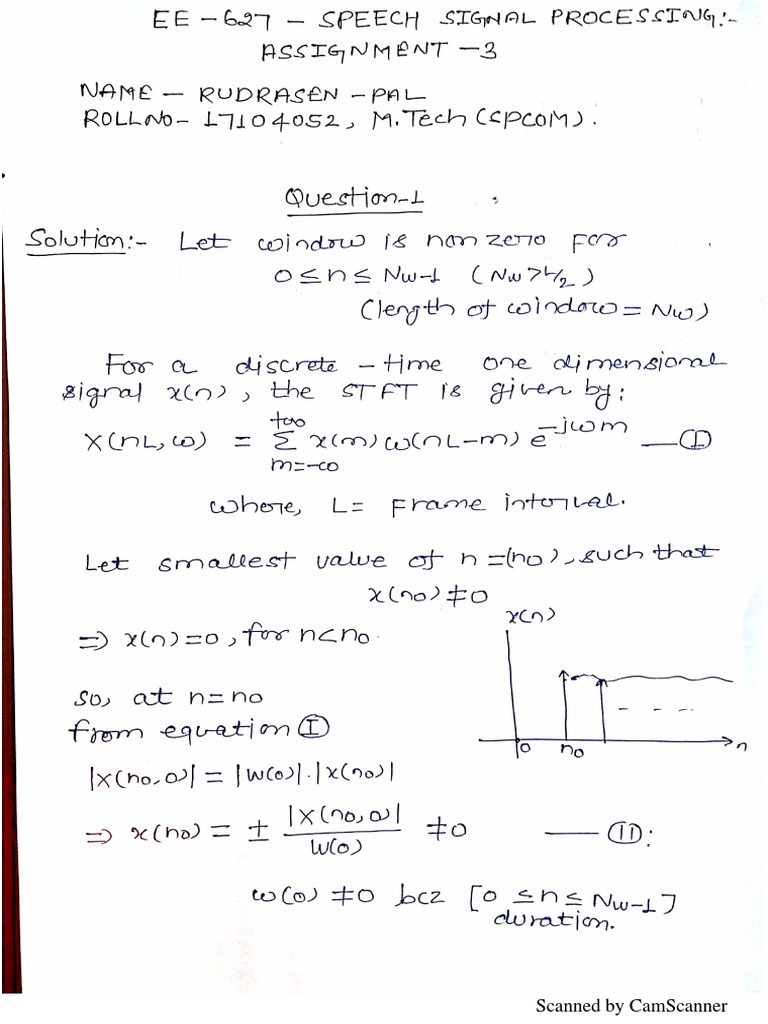 EE-627 - SPEECH SIGNAL PROCESSING:-
ASSIGNMENT-3
NAME - RUDRASEN-PAL
ROLLNO- 17104052, M.Tech (SPCOM).
Question-1
Solution:- Let window is non zero for
0 ≤ n ≤ Nw-1 (Nw > L/2)
(length of window = Nw)
For a discrete-time one dimensional
signal x(n), the STFT is given by:
X(nL, ω) = Σ_{m=-∞}^{+∞} x(m) w(nL-m) e^{-jωm} —— (I)
where, L = Frame interval.
Let smallest value of n = (n0), such that
x(n0) ≠ 0
⇒ x(n) = 0, for n < n0.
x(n)
0 n0 n
So, at n = n0
from equation (I)
|X(n0, 0)| = |W(0)|.|x(n0)|
⇒ x(n0) = ± |X(n0, 0)| / W(0) ≠ 0 —— (II):
w(0) ≠ 0 bcz [0 ≤ n ≤ Nw-1]
duration.
Scanned by CamScanner